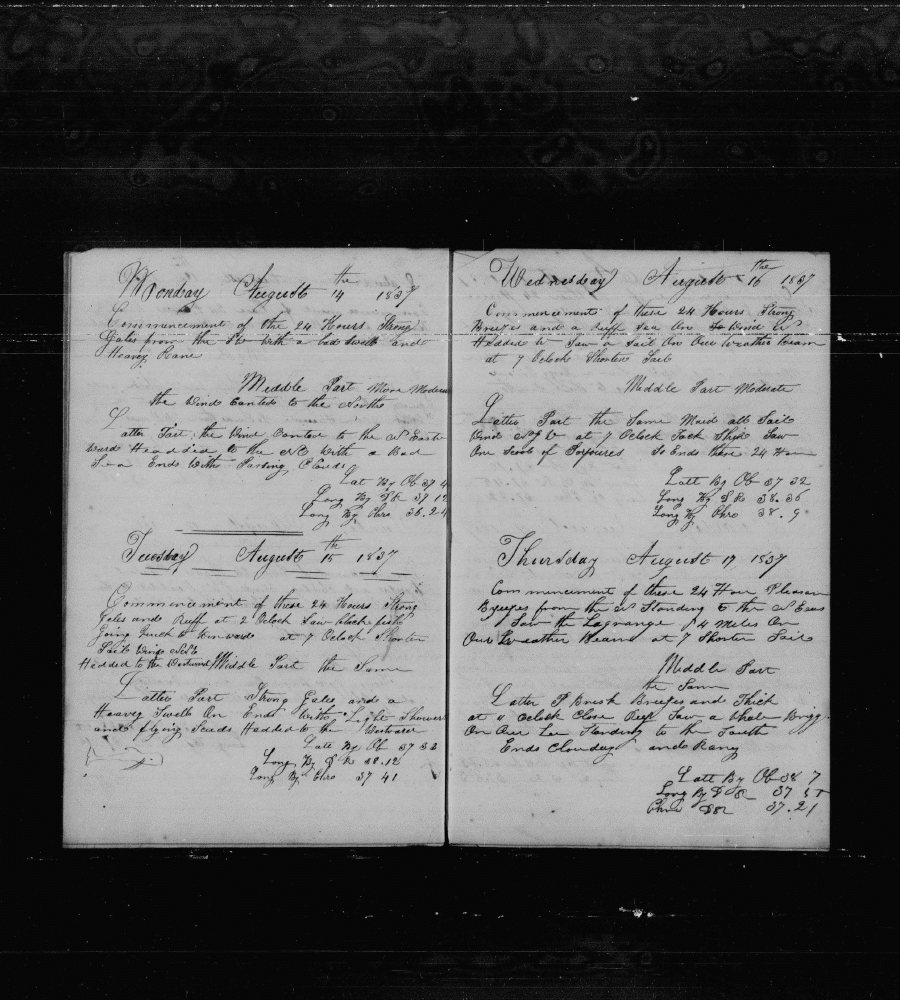 Monday August 14th 1837
Commencement of the 24 Hours Strong
Gales from the SW with a bad Swell and
Heavy
Middle Part More Modera
the Wind Canted to the North
Latter Part the Wind Canted to the N East
ward Headed to the NW with a Bad
Sea Ends With Passing Clouds
Lat By Ob 37 4
Long By D R 37 12
Long By Chro 36.24
Tuesday August 15th 1837
Commencement of these 24 Hours Strong
Gales and Ruff at 2 Oclock Saw black fish
Going Quick to Winward at 7 Oclock Shorten
Sail Wind
Hedded to the Westward Middle Part the Same
Latter Part Strong Gales and a
Heavey Swell On Ends With Light Showers
and flying Scuds Hadded to the
Latt By Ob 37 32
Long By D R 38.12
Long By Chro 37 41
Wednesday August 16the 1837
Commencement of these 24 Hours Strong
Breeses and a Ruff Sea On Wind
Hedded W Saw a Sail On Our Weather Beam
at 7 Oclock Shorten Sail
Middle Part Moderate
Latter Part the Same Maid all Sail
Wind at 7 Oclock Tack Ship Saw
One Scool of Porpuses So Ends these 24 Hours
Latt By Ob 37 32
Long By D R 38.36
Long By Chro 38.9
Thursday August 17 1837
Commencement of these 24 Hour Pleasan
Breeses from the N Standing to the N East
Saw the Lagrange 4 Miles On
Our Weather Beam at 7 Shorten Sail
Middle Part
the Same
Latter P Brisk Breeses and Thick
at 11 Oclock Close Reeft Saw a Whale Brigg
On Our Lee Standing to the South
Ends Clouday and Rany
Latt By Ob 38 7
Long By D R 37
Chro 37.21